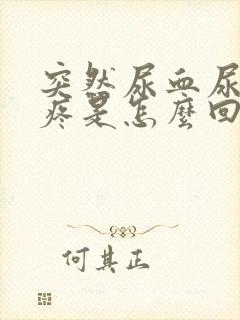 突然尿血尿
疼是怎麼回
何其正